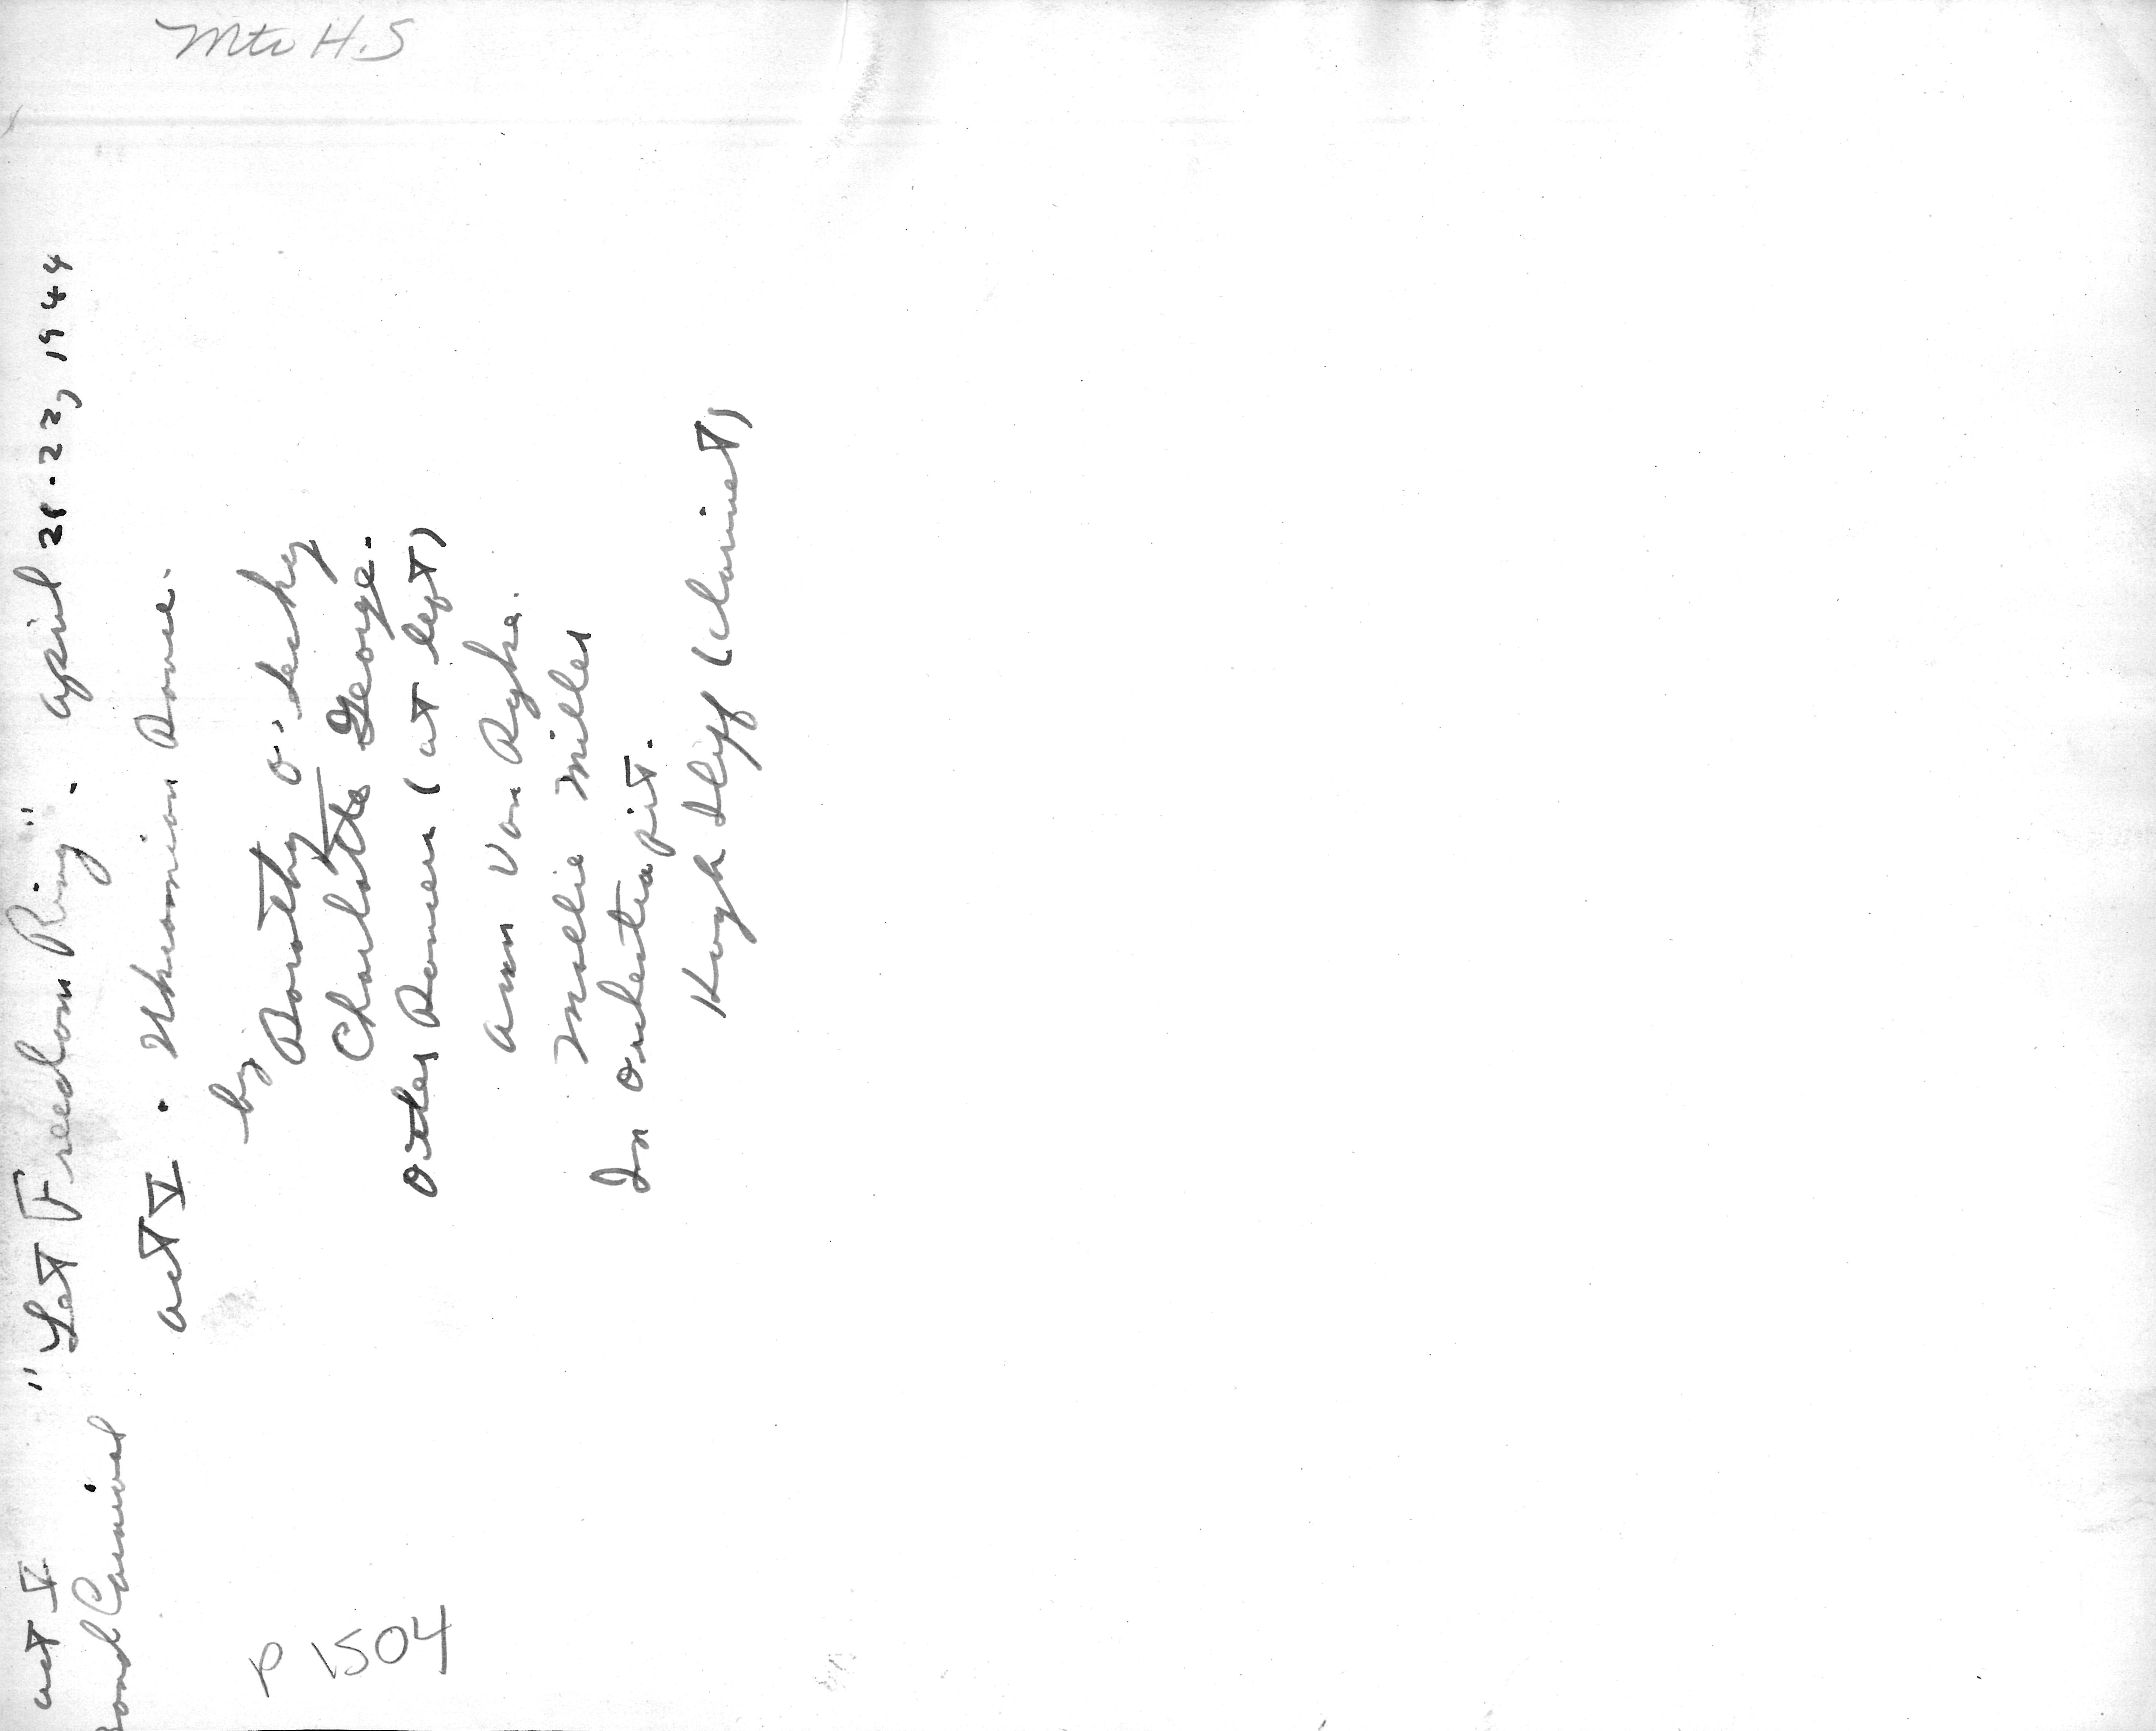 Mtn H.S
Act V "Let Freedom Ring". April 21-22, 1944
Band Carnival
Act V. Ukrainian Dance.
by
Dorothy
Charlotte George.
Other Dancers (at left)
Ann Van Ryke.
Mollie Miller
In orchestra pit.
Hugh Iliff (clarinet)
P 1504